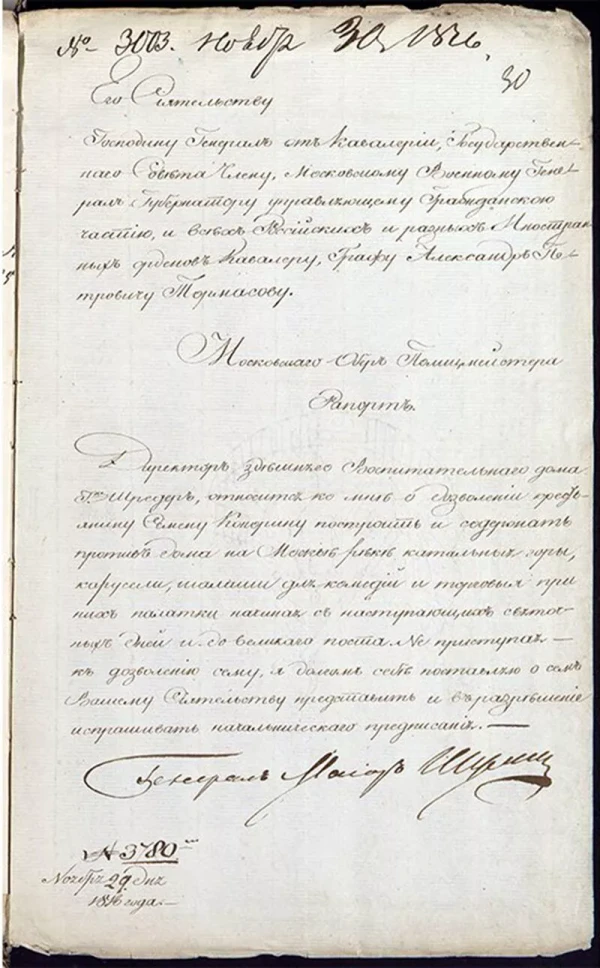 № 3003. Ноябр 30 1816
30
Его Сіятельству
Господину Генералъ отъ Кавалеріи, Государствен-
наго Совѣта Члену, Московскому Военному Гене-
ралъ Губернатору управляющему Гражданскою
частію, и всѣхъ Россійскихъ и разныхъ Иностран-
ныхъ орденовъ Кавалеру, Графу Александръ Пе-
тровичу Тормасову.
Московскаго Оберъ Полицмейстера
Рапортъ.
Директоръ здѣшняго Воспитательнаго дома
Гнъ Шредеръ, относится ко мнѣ о дозволеніи кресть-
янину Семену построить и содержать
противъ дома на Москвѣ рѣкѣ катальныя горы,
карусели, шалаши для комедій и торговыя при
нихъ палатки начиная съ наступающихъ святоч-
ныхъ дней и до великаго поста. Не приступая —
къ дозволенію сему, я долгомъ себѣ поставляю о семъ
Вашему Сіятельству представить и въ разрѣшеніе
испрашивать начальническаго предписанія. —
Генералъ Маіоръ Шульгинъ
№ 3780
Ноябр 29 дня
1816 года. —